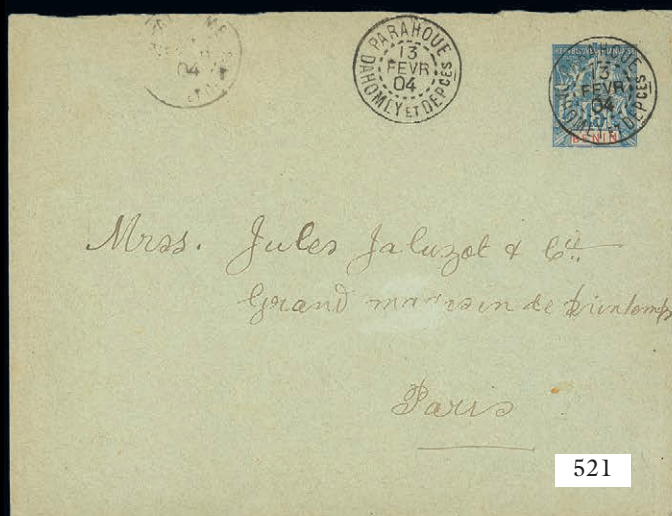 PARAHOUE
13
FEVR
04
DAHOMEY ET DEPCES
13
FEVR
04
DAHOMEY ET DEPCES
15
BENIN
Mrss. Jules Jaluzot & Cie
Grand magasin de Printemps
Paris
521